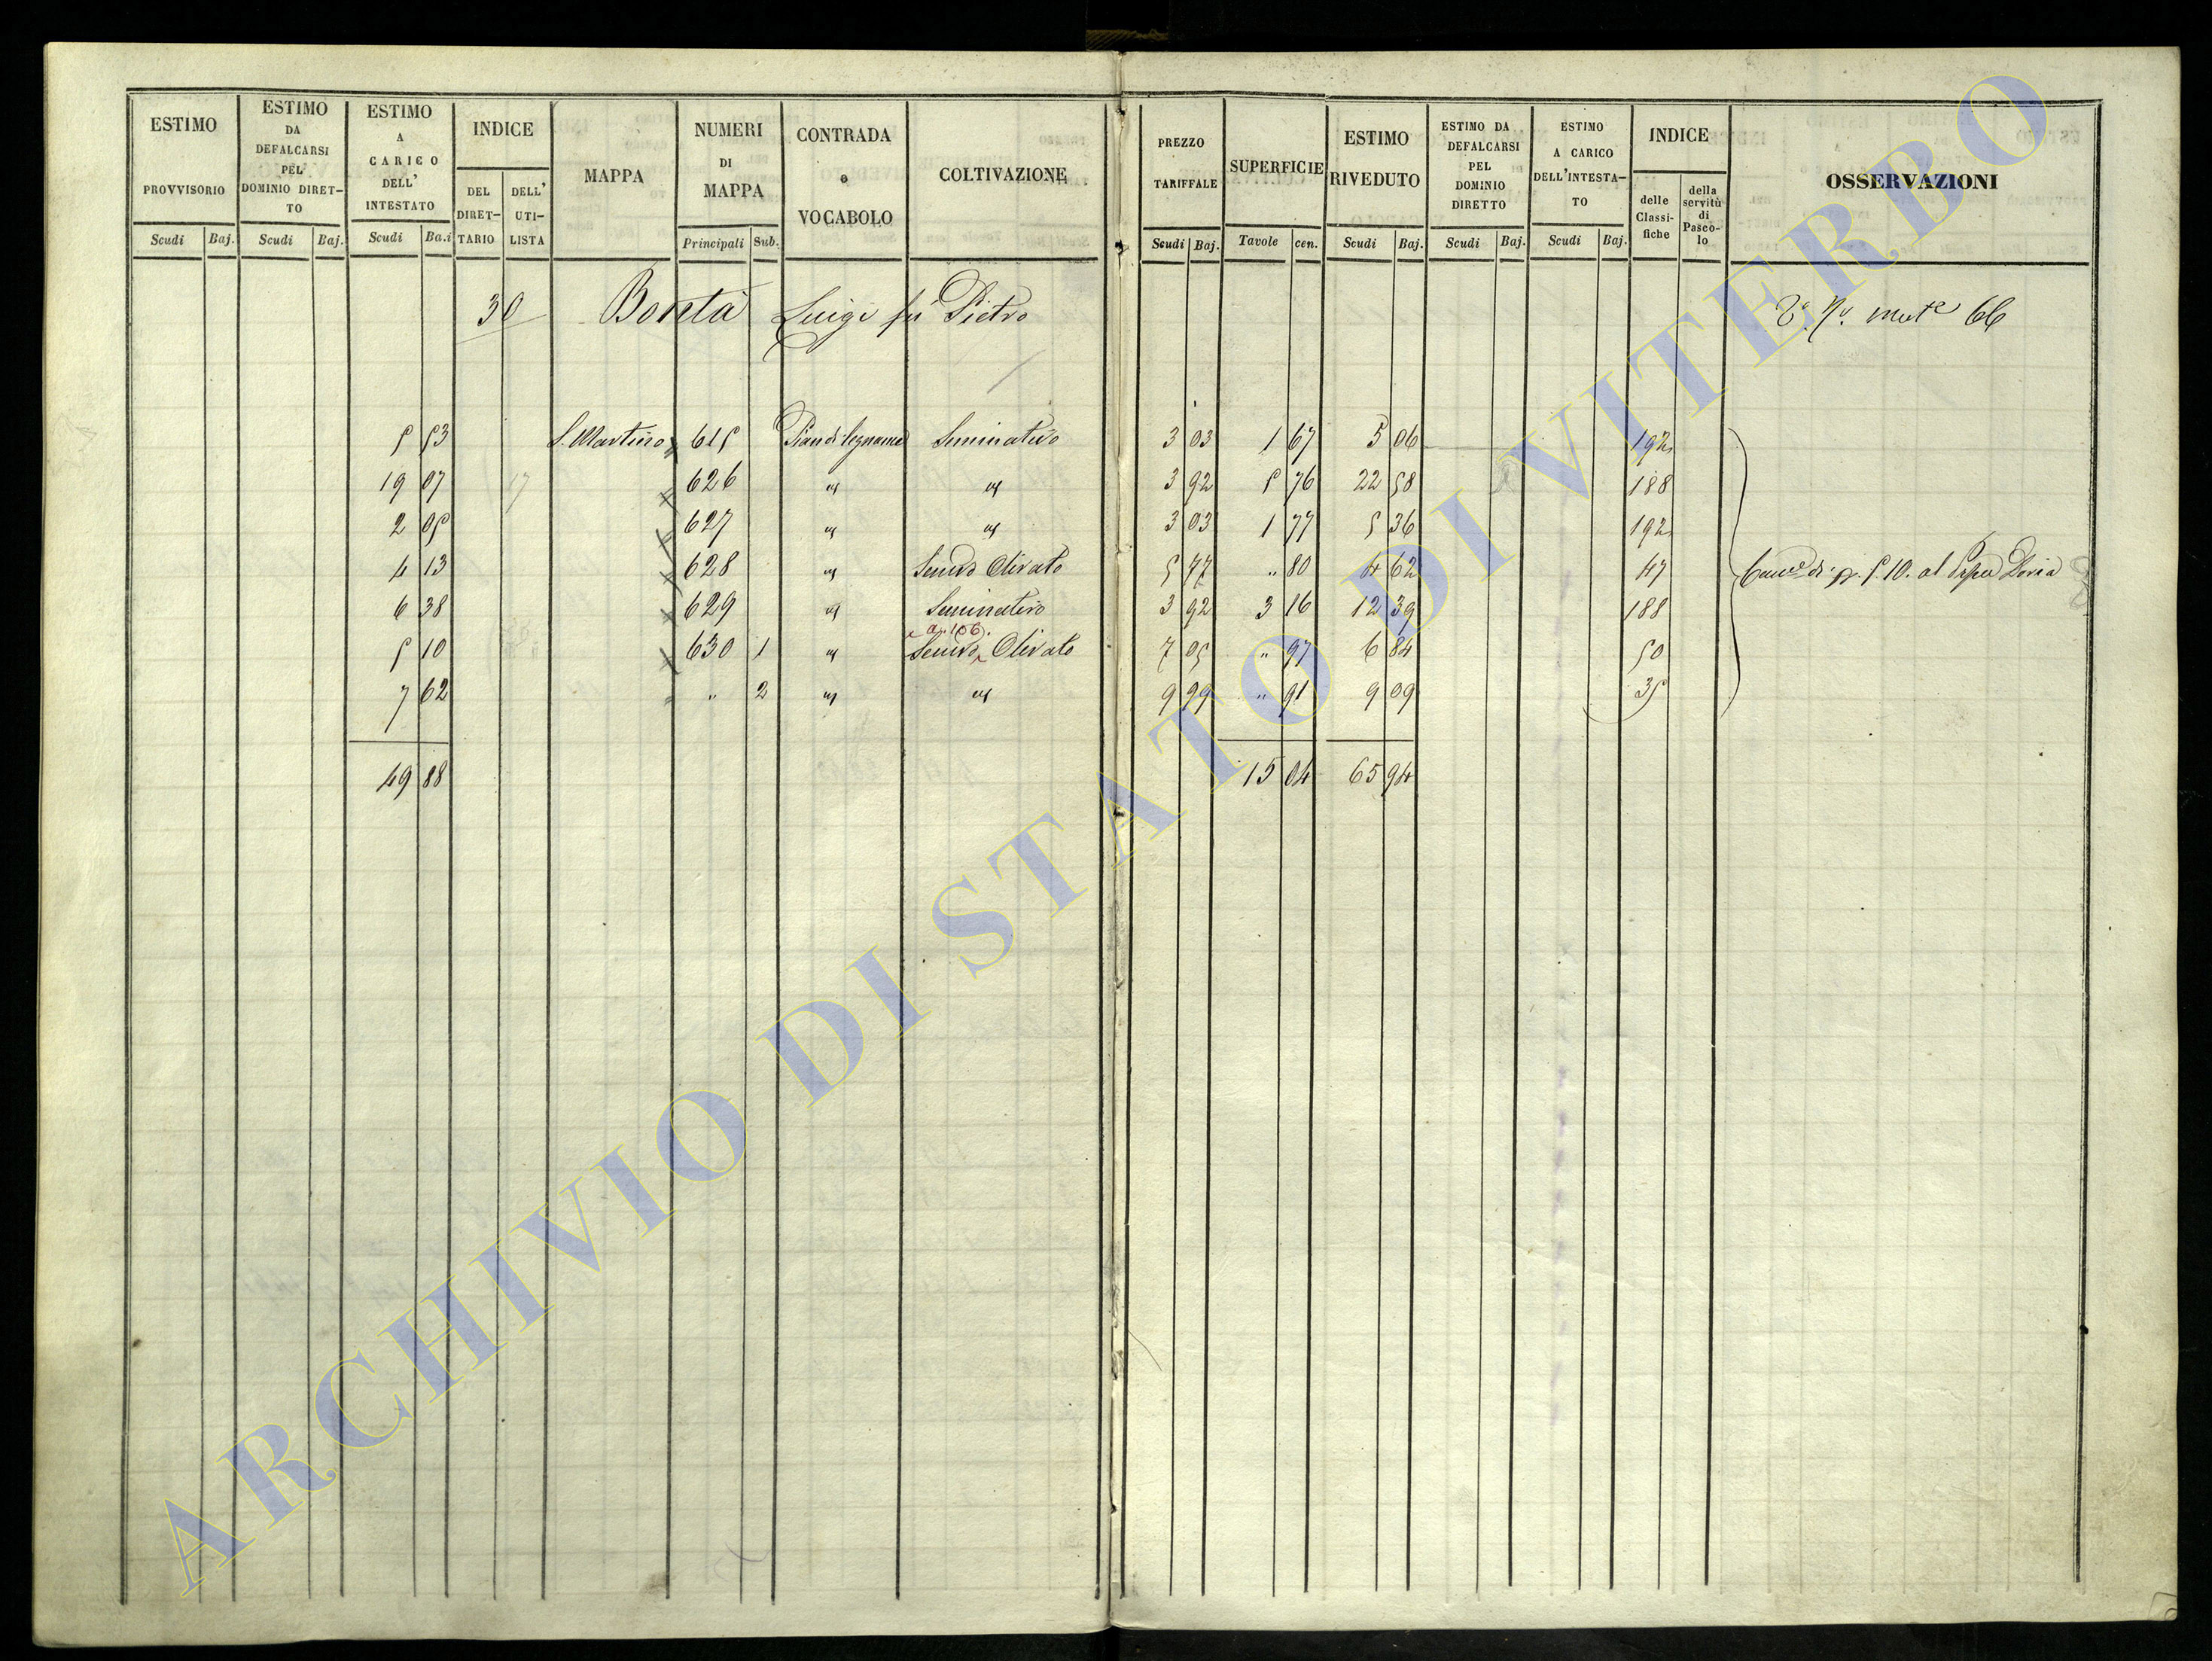 ESTIMO PROVVISORIO Scudi Baj. | ESTIMO DA DEFALCARSI PEL DOMINIO DIRET-TO Scudi Baj. | ESTIMO A CARICO DELL' INTESTATO Scudi Ba.i | INDICE DEL DIRET-TARIO DELL' UTI-LISTA | MAPPA | NUMERI DI MAPPA Principali Sub. | CONTRADA o VOCABOLO | COLTIVAZIONE | PREZZO TARIFFALE Scudi Baj. | SUPERFICIE Tavole cen. | ESTIMO RIVEDUTO Scudi Baj. | ESTIMO DA DEFALCARSI PEL DOMINIO DIRETTO Scudi Baj. | ESTIMO A CARICO DELL'INTESTA-TO Scudi Baj. | INDICE delle Classi-fiche della servitù di Pasco-lo | OSSERVAZIONI
30 Bontà Luigi fu Pietro 66
5 53 S. Martino 615 Pian di legname Seminativo 3 03 1 67 5 06 192
19 07 17 626 " " 3 92 5 76 22 58 188
2 05 627 " " 3 03 1 77 5 36 192
4 13 628 " Semvo Olivato 5 77 " 80 4 62 47 al Doria
6 38 629 " Seminativo 3 92 3 16 12 39 188
a. 106.
5 10 630 1 " Semvo Olivato 7 05 " 97 6 84 50
7 62 " 2 " " 9 99 " 91 9 09 35
49 88 15 04 65 94
ARCHIVIO DI STATO DI VITERBO